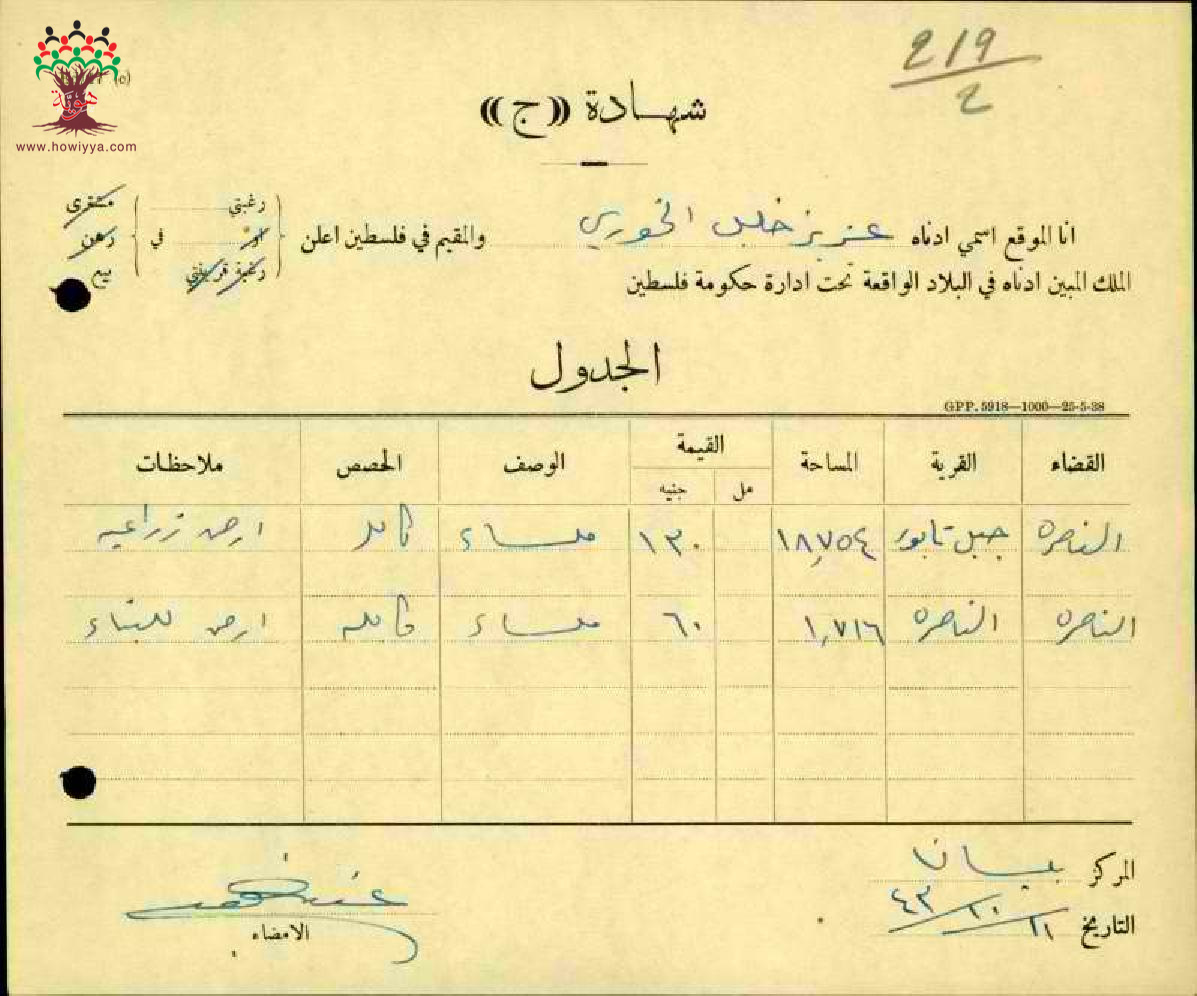 219/2
(c)
هوية
www.howiyya.com
شهادة ((ج))
انا الموقع اسمي ادناه عزيز خليل الخوري والمقيم في فلسطين اعلن { رغبتي او رغبة قرينتي } في { مشترى رهن بيع
الملك المبين ادناه في البلاد الواقعة تحت ادارة حكومة فلسطين
الجدول
GPP. 5918—1000—25-5-38
القضاء القرية المساحة القيمة الوصف الحصص ملاحظات
مل جنيه
الناصره جبل تابور ١٨٫٧٥٤ ١٣٠ ملساء كامل ارض زراعيه
الناصره الناصره ١٫٧١٦ ٦٠ ملساء كامله ارض للبناء
المركز بيسان
التاريخ ٤٣/١٠/
الامضاء